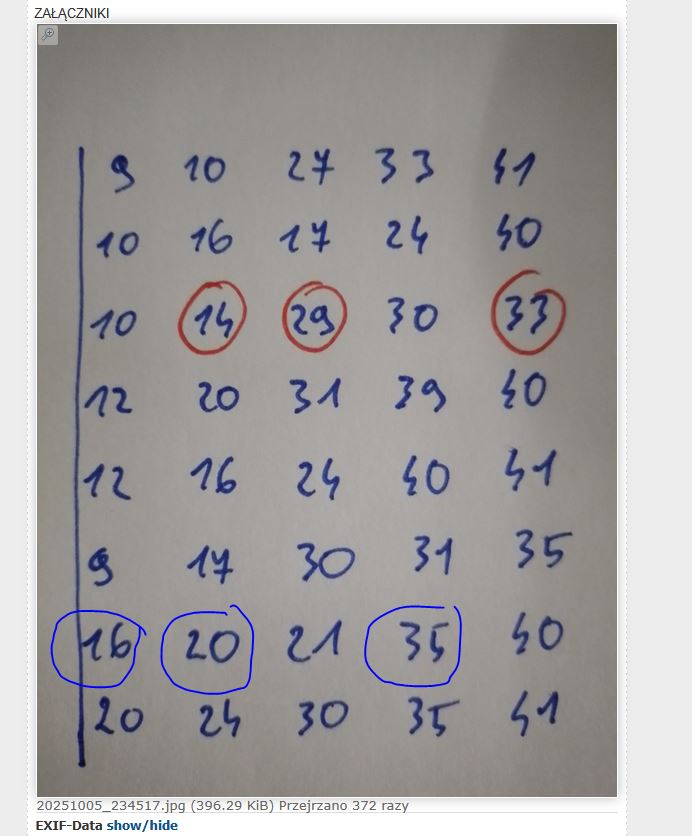 ZAŁĄCZNIKI
9 10 27 33 41
10 16 17 24 40
10 14 29 30 33
12 20 31 39 40
12 16 24 40 41
9 17 30 31 35
16 20 21 35 40
20 24 30 35 41
20251005_234517.jpg (396.29 KiB) Przejrzano 372 razy
EXIF-Data show/hide